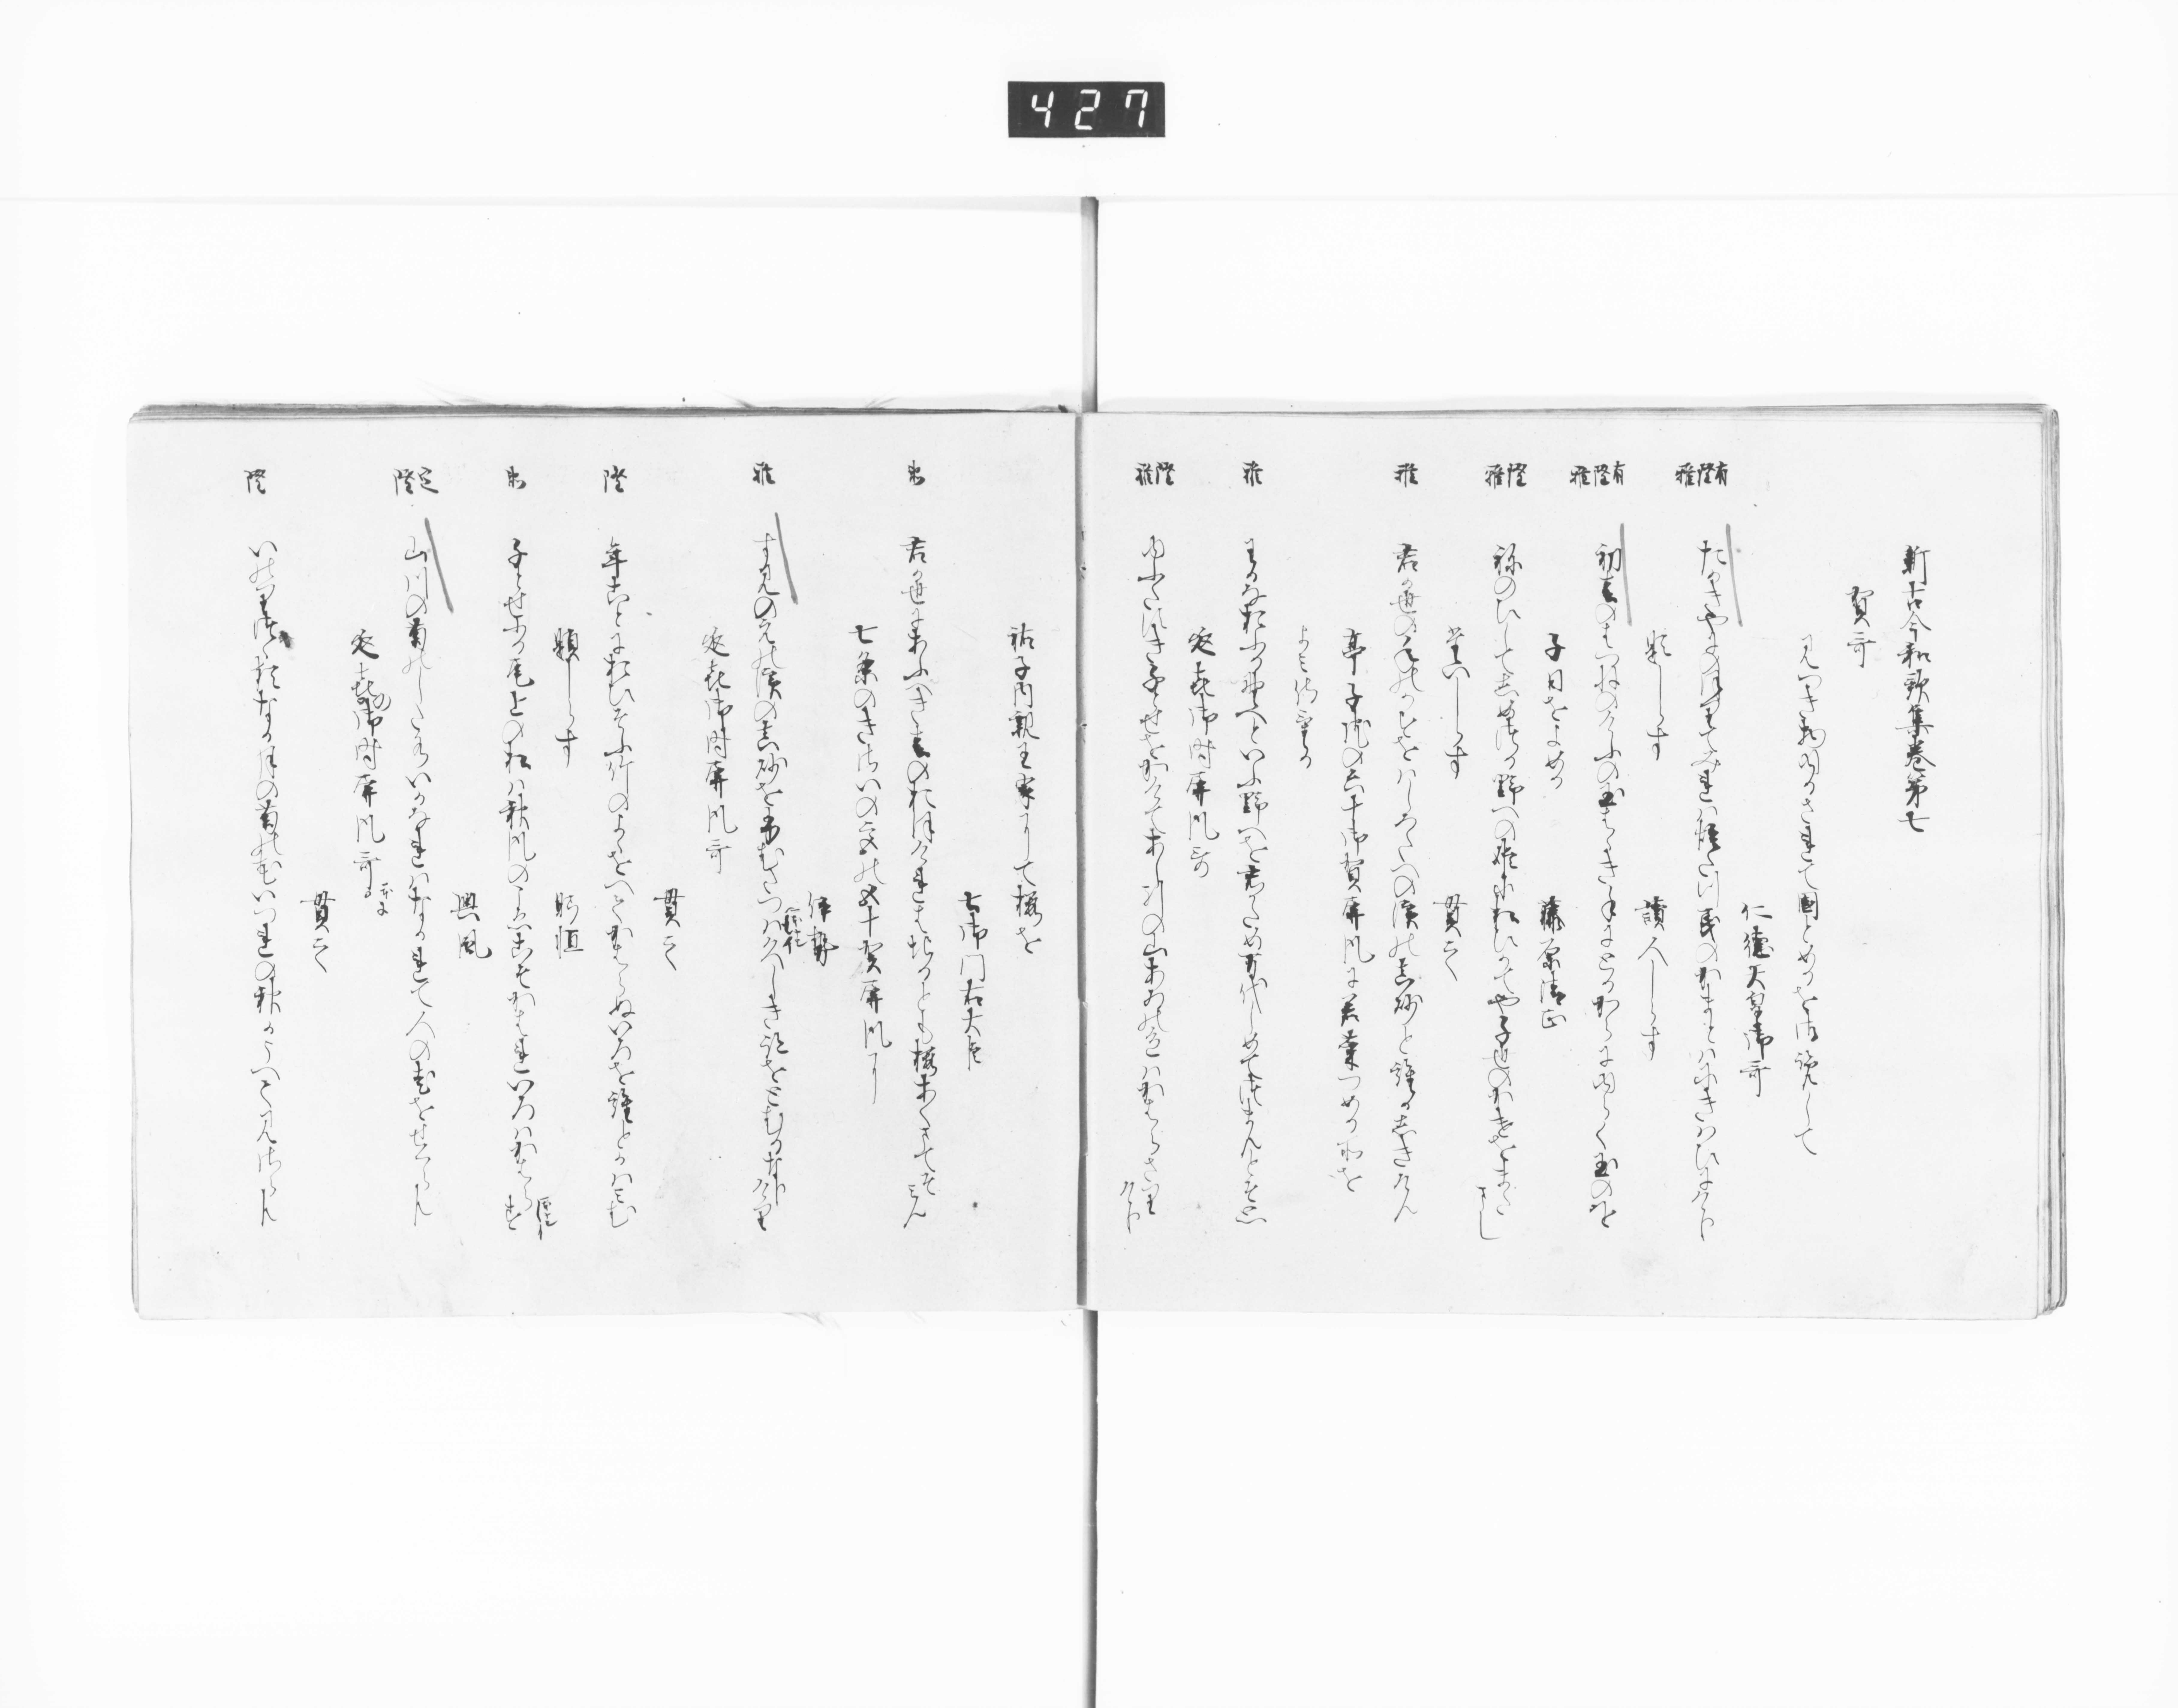 427
新古今和歌集巻第七
賀哥
みつき物ゆるされて国とめるを御覧して
仁徳天皇御哥
有隆雅
たかきやにのほりてみれは煙たつ民のかまとはにきはひにけり
題しらす
讀人しらす
有隆雅
初春のはつねのけふの玉はゝき手にとるからにゆらく玉のを
子日をよめる
藤原清正
隆雅
祢のひしてしめつる野へのひめこ松ひかてや千世のかけをまたまし
題しらす
貫之
雅
君か世の年のかすをはしろたへの濱の真砂と誰かしきけん
亭子院の六十御賀屏風に若菜つめる所を
よみ侍ける
雅
わかなおふる野へといふ野へを君かため万代しめてつまんとそ思
延喜御時屏風哥
隆雅
ゆふたすき千とせをかけてあし引の山あゐの色はかはらさりけり
祐子内親王家にて櫻を
土御門右大臣
君か世にあふへき春のおほけれはちるとも櫻あくまてそみん
七条のきさいの宮の五十賀屏風に
伊勢
雅
すみの江の濱の真砂をふむたつはひさしき跡をとむるなりけり
延喜御時屏風哥
貫之
隆
年ことにおひそふ竹のよゝをへてかはらぬいろを誰とかはみむ
題しらす
躬恒
千とせふる尾上の松は秋風のこゑこそかはれいろはかはらす
興風
定隆
山川の菊のした水いかなれはなかれて人の老をせくらん
延喜御時屏風哥
貫之
隆
いのりつゝ猶なか月の菊の花いつれの秋かうへてみさらん